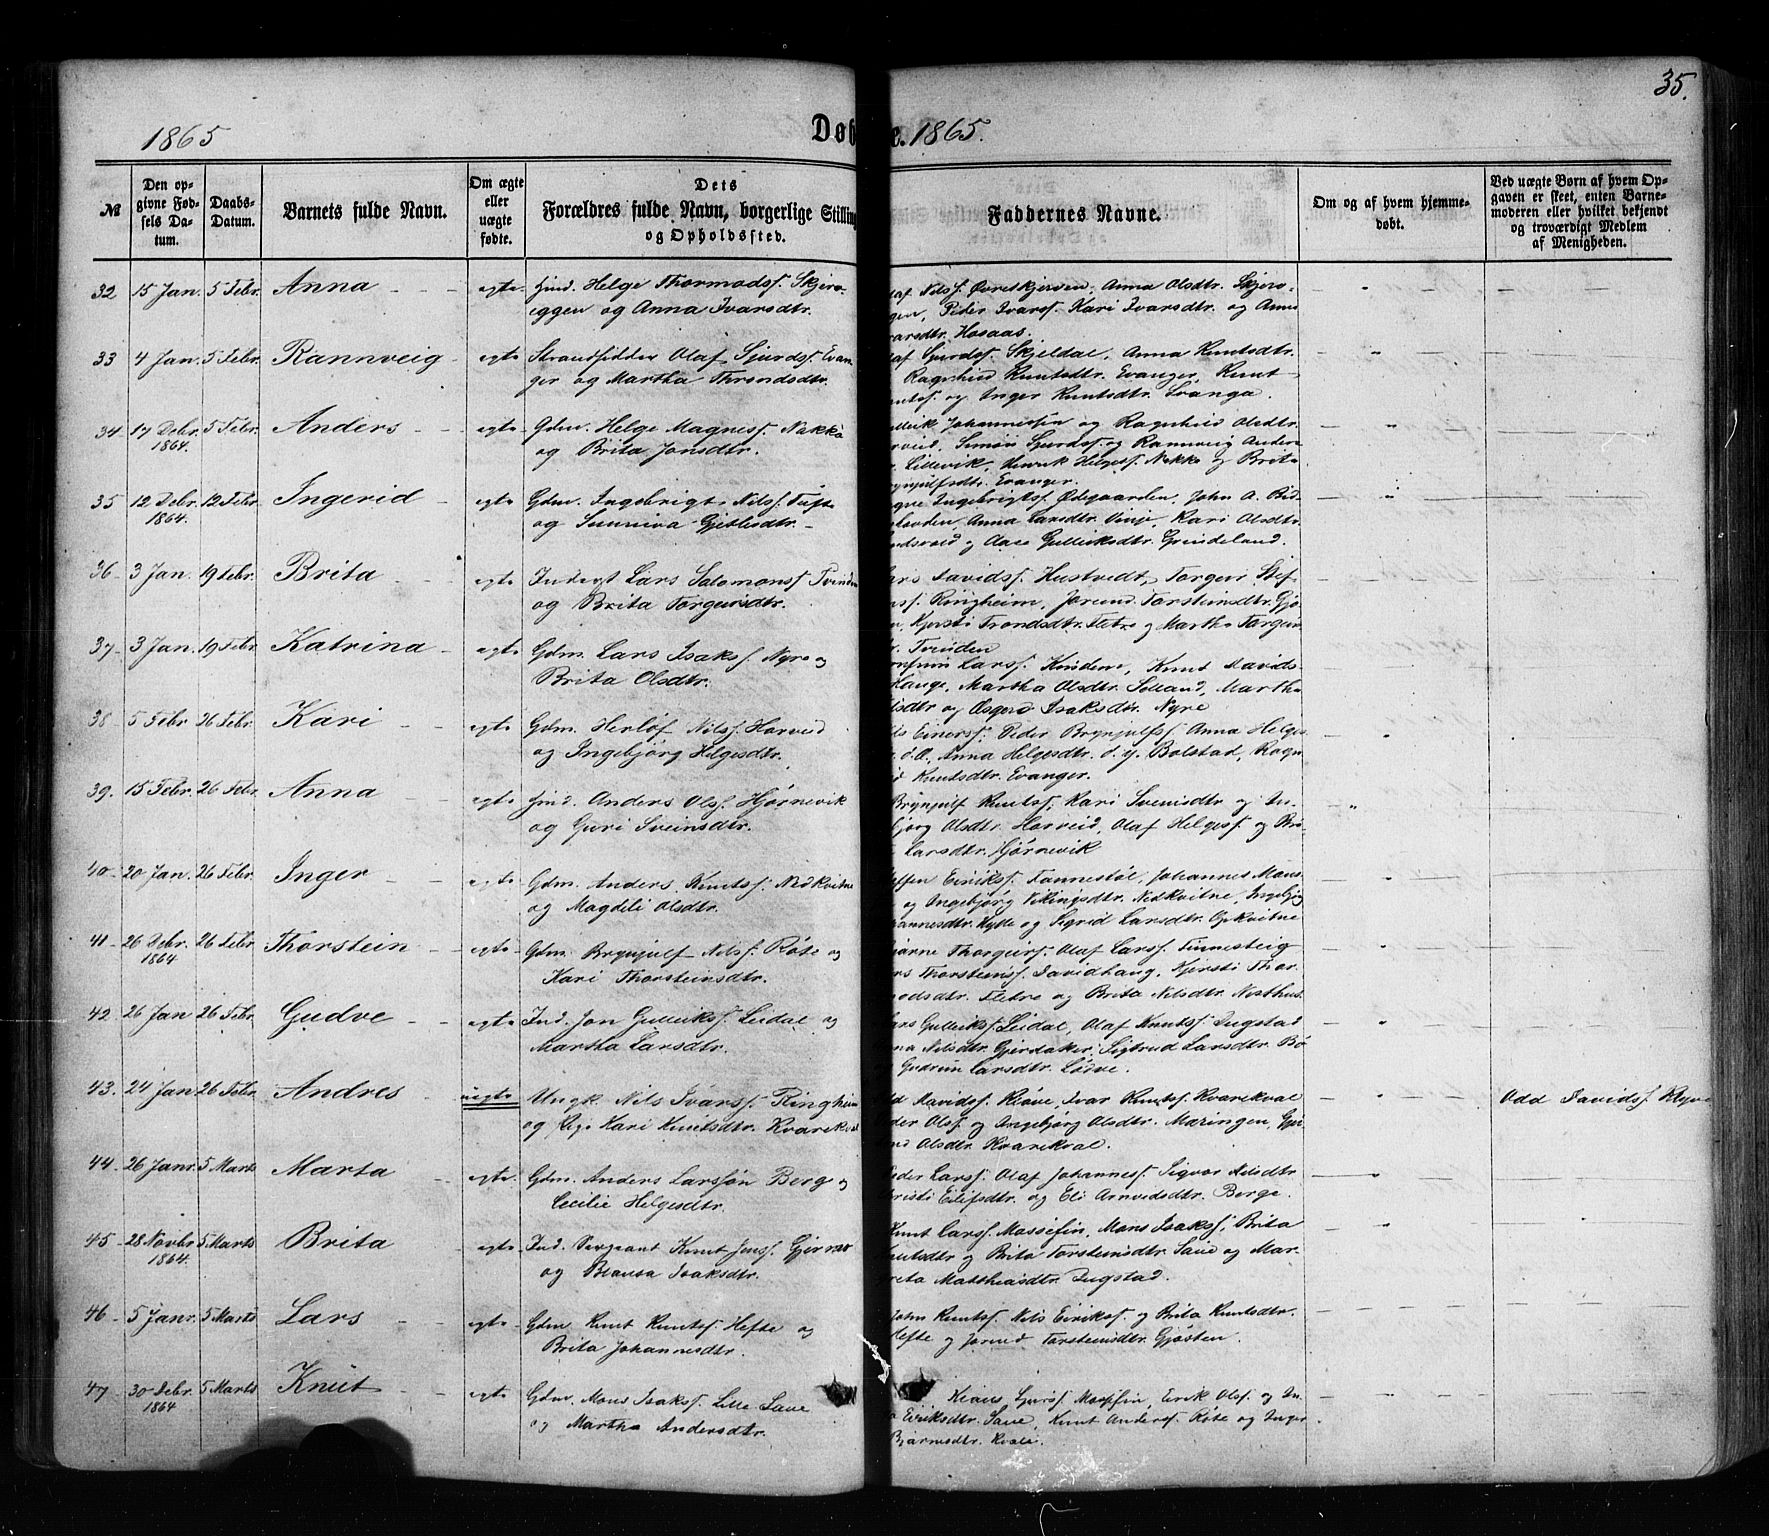 35.
1865 Døb e. 1865.
№
Den opgivne Fødsels Datum.
Daabs-Datum.
Barnets fulde Navn.
Om ægte eller uægte fødte.
Dets Forældres fulde Navn, borgerlige Stilling og Opholdssted.
Faddernes Navne.
Om og af hvem hjemmedøbt.
Ved uægte Børn af hvem Opgaven er skeet, enten Barnemoderen eller hvilket bekjendt og troværdigt Medlem af Menigheden.
32 15 Jan. 5 Febr. Anna - - egte Hind. Helge Thormodss. Skjerveggen og Anna Ivarsdtr.
af Nilss. Øvreskjerven, Anna Olsdtr. Skjer-
gen, Peder Ivarss. Kari Ivarsdtr. og Anna
arsdtr. Hosaas.
33 4 Jan. 5 Febr. Rannveig - egte Strandsidder Olaf Sjurdss. Evan-
ger og Martha Throndsdtr.
af Sjurdss. Skjeldal, Anna Knutsdtr.
Ragnhild Knutsdtr. Evanger, Knut
og Inger Knutsdtr. Svanga.
34 17 Debr. 1864. 5 Febr. Anders - egte Gdm. Helge Magness. Nekke
og Brita Jonsdtr.
Johannessen og Ragnhild Olsdtr.
Simon Sjurdss. og Rannveig Anders
Lillevik, Henrik Helgess. Nekke og Brita
Evanger.
35 12 Debr. 1864. 12 Febr. Ingerid - egte Gdm. Ingebrigt Nilss. Tufte
og Sunniva Gjetlesdtr. -
gve Ingebrigtss. Ødegaarden, John A. Bid-
Anna Larsdtr. Vinje, Kari Olsdtr.
og Aase Gulleiksdtr. Grindeland.
36 3 Jan. 19 Febr. Brita - - egte Inderst Lars Salomonss. Tvinden
og Brita Torgeirsdtr.
ars Davidss. Hustvedt, Torgeir Stef
ss. Ringheim, Jorund Torsteinsdtr. Gjø
Kjersti Trondsdtr. Fletre og Martha Torgeir
Tvinden
37 3 Jan. 19 Febr. Katrina - egte Gdm. Lars Isakss. Nyre og
Brita Olsdtr.
Larss. Kinderne, Knut Davids-
Hauge, Martha Olsdtr. Selland, Martha
sdtr og Osgerd Isaksdtr. Nyre
38 5 Febr 26 Febr. Kari - - egte Gdm. Herlof Nilss. Horveid
og Ingebjørg Helgesdtr.
Einerss. Peder Brynjulfss. Anna Helges
d.Æ. Anna Helgesdtr. d. y. Bolstad, Ragn
Knutsdtr. Evanger.
39. 15 Febr. 26 Febr. Anna - - egte Hind. Anders Olss. Hjørnevik
og Guri Sveinsdtr.
Brynjulf Knutss. Kari Sveinsdtr og In-
bjørg Olsdtr. Horveid, Olaf Helgess. og Bri
Larsdtr. Hjørnevik
40 20 Jan. 26 Febr. Inger - - egte Gdm. Anders Knutss. Nedkvitne
og Magdeli Olsdtr.
ffen Eirikss. Fannestøl, Johannes Mons
og Ingebjørg Vikingsdtr. Nedkvitne, Ingebjørg
annesdtr. Hylle og Sigrid Larsdtr. Opkvitne
41 26 Debr. 1864 26 Febr. Thorstein - egte Gdm. Brynjulf Nilss. Røte og
Kari Thorsteinsdtr.
Thorgeirss. Olaf Larss. Finnesteig
Thorsteinss. Davidhaug, Kjersti Thor-
modsdtr. Fletre og Brita Nilsdtr. Nesthus.
42 26 Jan 26 Febr. Gudve - - egte Ind. Jon Gulleikss. Leidal og
Martha Larsdtr.
ars Gulleikss. Leidal, Olaf Knutss. Dugstad
na Nilsdtr. Gjerdaker. Sigtrud Larsdtr. Bø
Gudrun Larsdtr. Løeve.
43. 24 Jan 26 Febr. Andres - uegte Ungk. Nils Ivarss. Ringheim
og Pige Kari Knutsdtr. Kvarekval
Davidss. Kløve, Ivar Knutss. Kvarekval
der Olss. og Ingebjørg Olsdtr. Maringen, Gje
Olsdtr. Kvarekval.
Odd Davidss. Kløve
44. 26 Janr. 5 Marts Marta - egte. Gdm. Anders Larssøn Berg og
Cecilie Helgesdtr.
eder Larss. Olaf Johanness. Sigvor Nilsdtr
hristi Eilifsdtr. og Eli Arnvidsdtr. Berge.
45 28 Novbr 1864. 5 Marts Brita - egte Ind. Sergeant Knut Jenss. Gjernes
og Blansa Isaksdtr.
Knut Larss. Massefin, Mons Isakss. Brita
nutsdtr og Brita Torsteinsdtr. Saue og Mar-
reta Matthiasdtr. Dugstad.
46 5 Janr. 5 Marts Lars - - egte Gdm Knut Knutss. Hefte og
Brita Johannesdtr.
John Knutss. Nils Eirikss. og Brita Knutsdtr.
Hefte og Jorund Torsteinsdtr. Gjøsten.
47 30 Debr. 1864 5 Marts Knut - egte Gdm. Mons Isakss. Lille Saue
og Martha Andersdtr.
Klaus Sjurss. Møffin, Eirik Olss. og In-
a Eiriksdtr. Saue, Knut Anderss. Røte og Inger
Bjarnesdtr. Kvale.